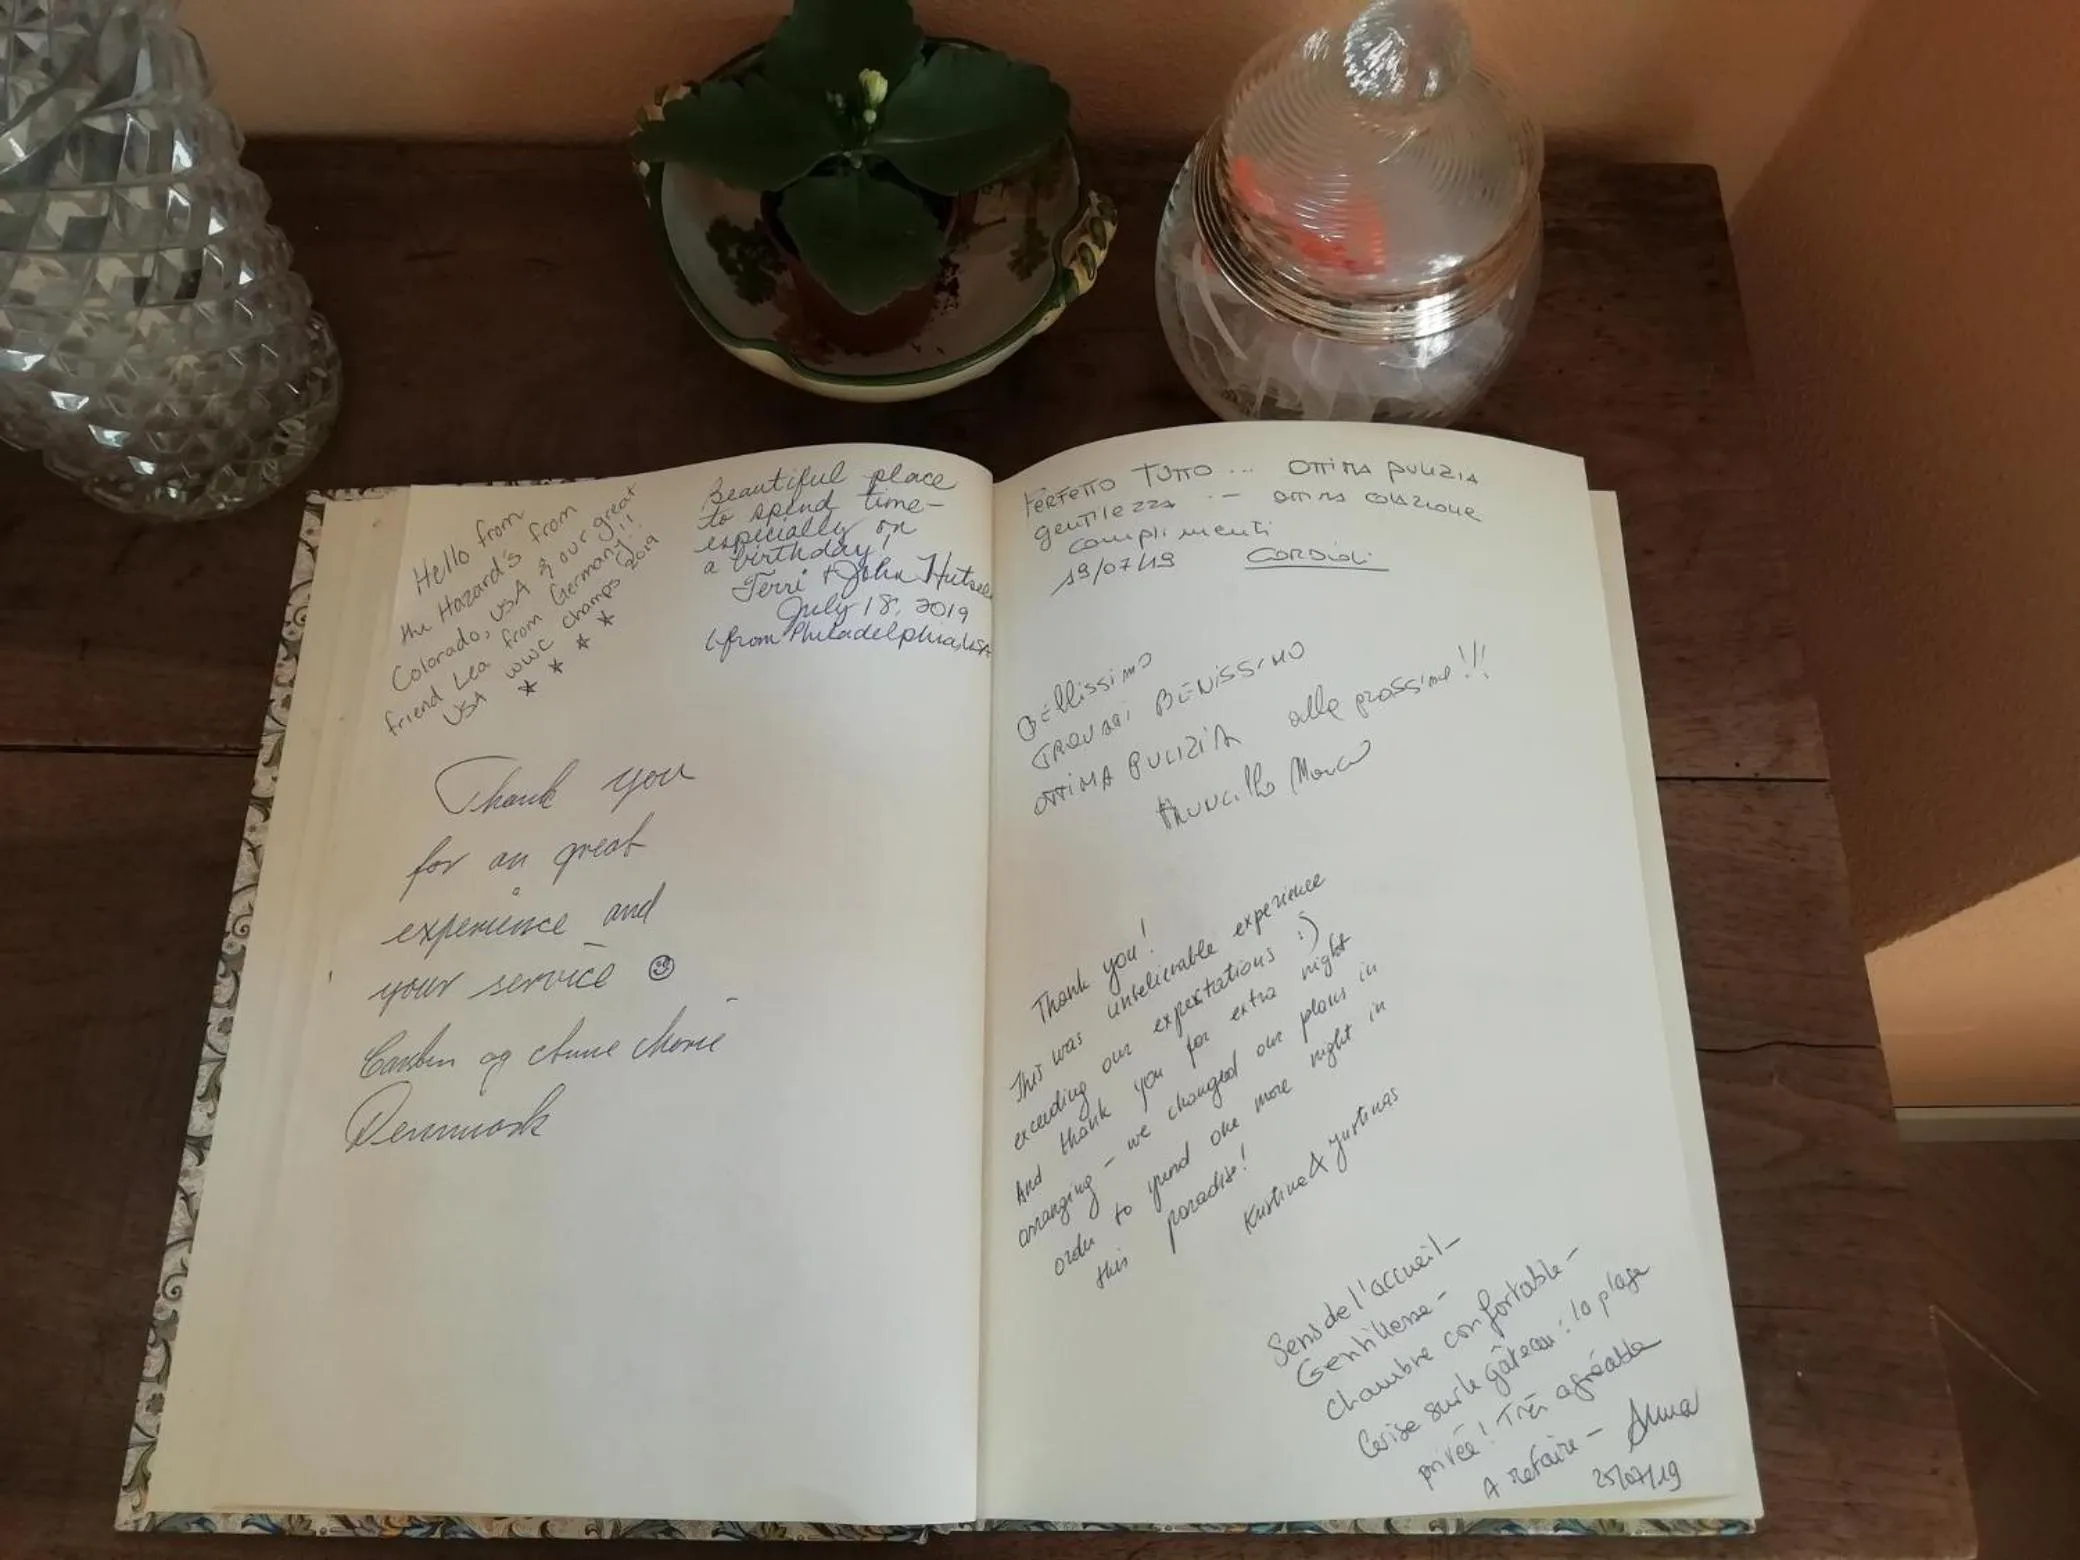 Hello from
the Hazard's from
Colorado, USA & our great
friend Lea from Germany!!
USA WWC Champs 2019
* * * *
Beautiful place
to spend time—
especially on
a birthday!
Terri + John
July 18, 2019
(from Philadelphia, USA
Thank you
for an great
experience and
your service ☺
og
Denmark
PERFETTO TUTTO ... OTTIMA PULIZIA
gentilezza ·— OTTIMA COLAZIONE
complimenti
19/07/19 CORDIOLI
BELLISSIMO
TROVAI BENISSIMO
OTTIMA PULIZIA alla prossima!!!
Marco
Thank you!
This was unbelievable experience
exceeding our expextations :)
And thank you for extra night
arranging – we changed our plans in
order to spend one more night in
this paradise!
Kristina & Justinas
Sens de l'accueil –
Gentillesse –
Chambre confortable –
Cerise sur le gâteau : la plage
privée ! Très agréable
A refaire – Anna
25/07/19